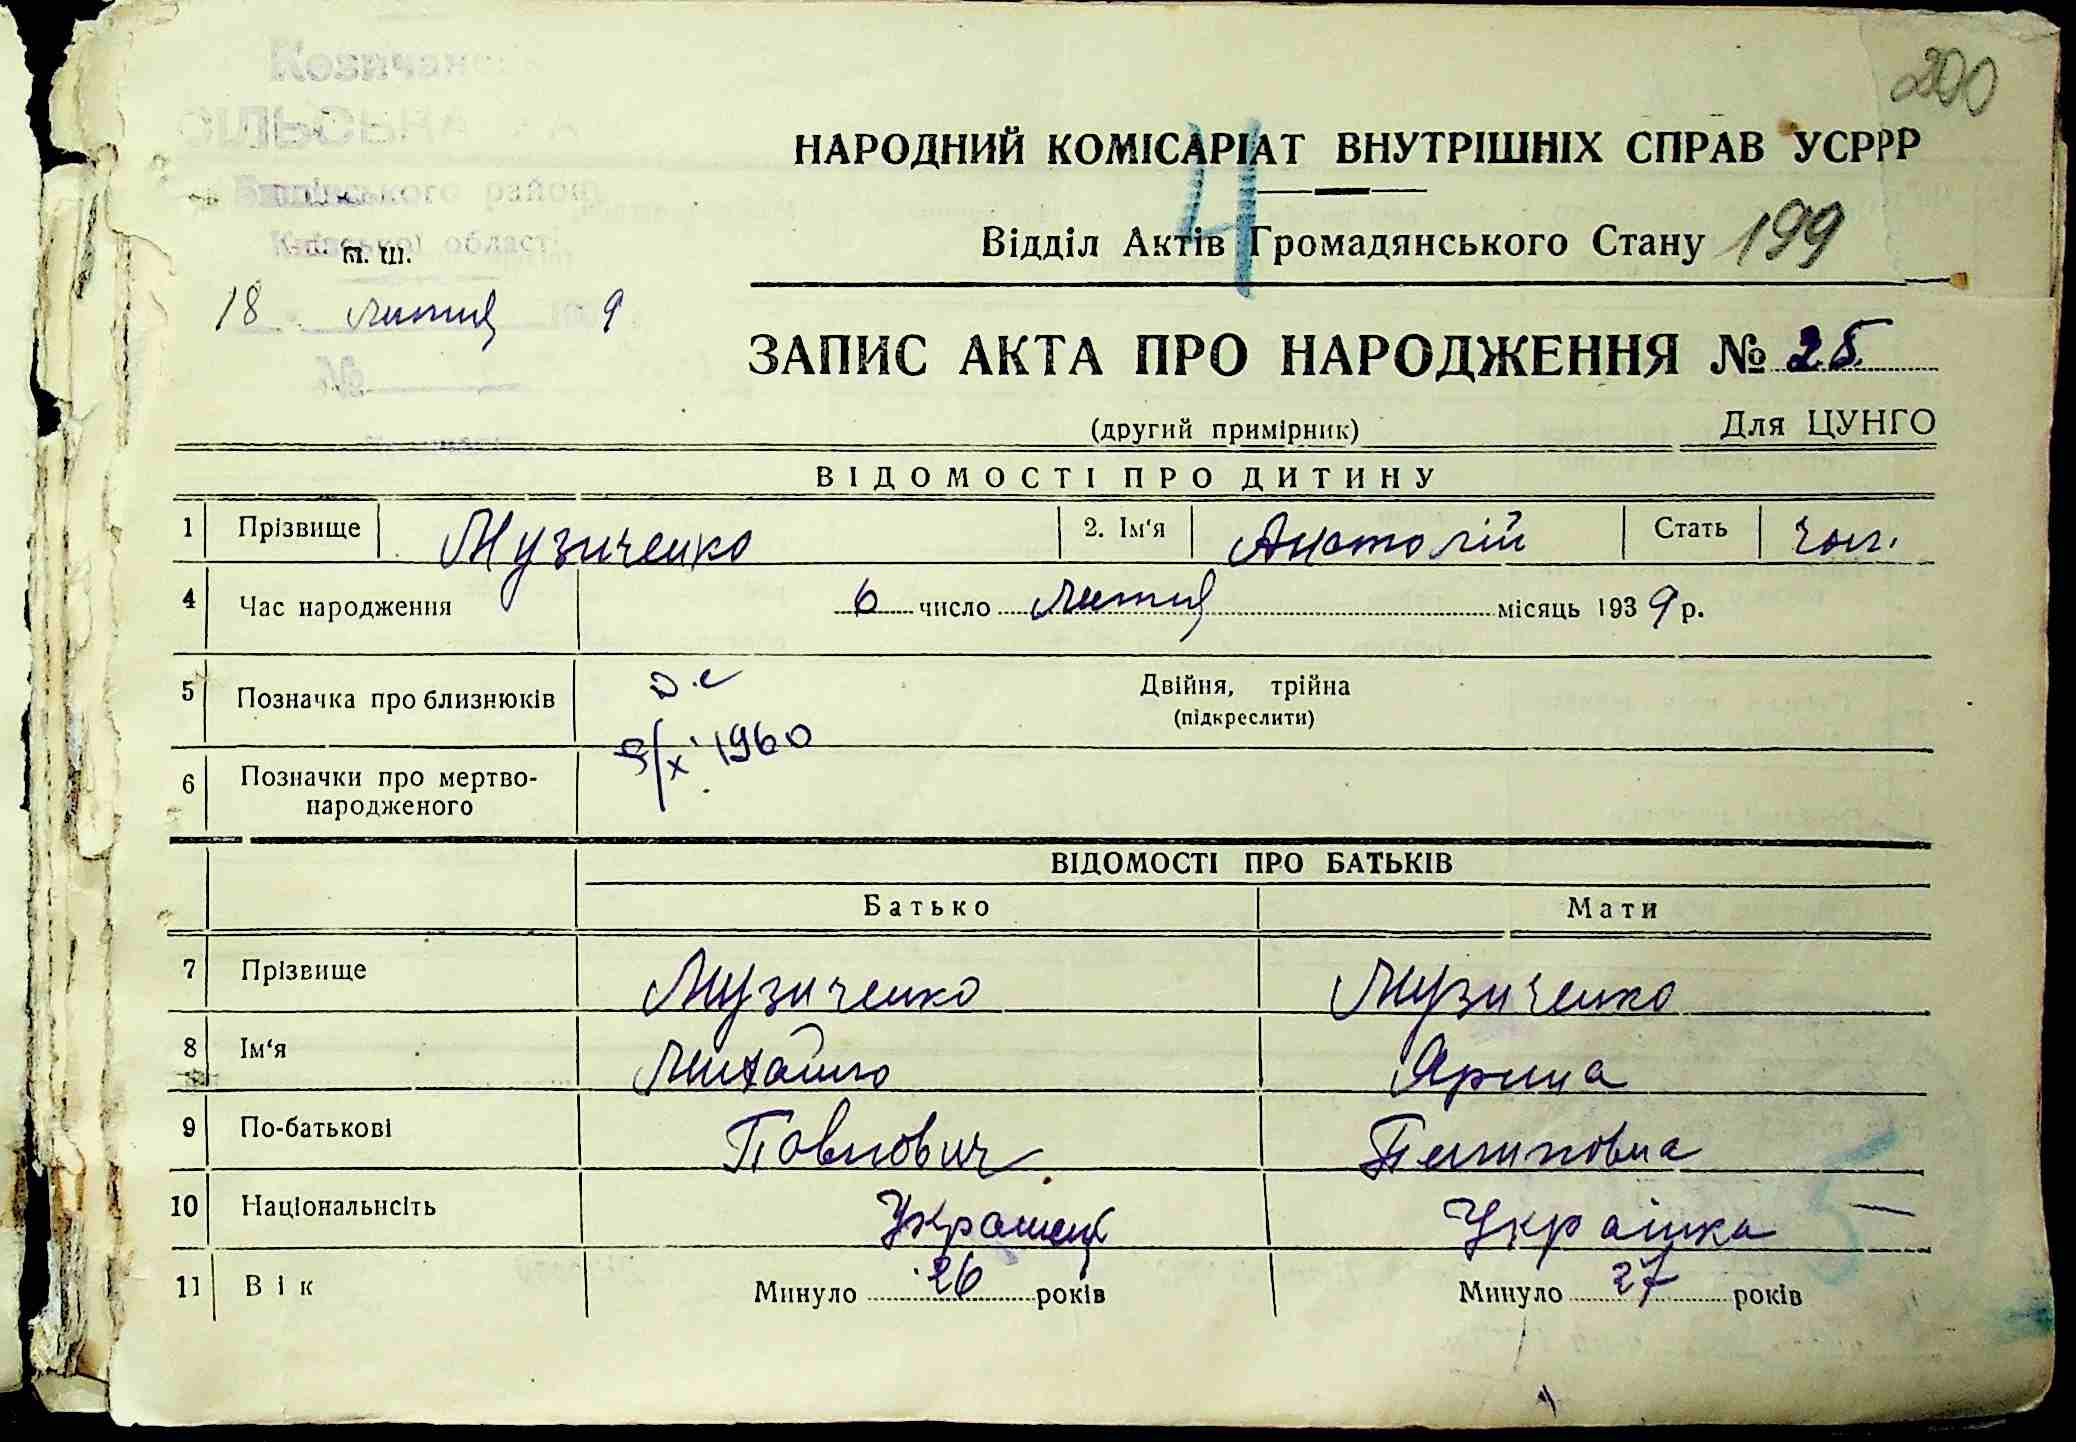 200
Козичанс
СІЛЬСЬКА
НАРОДНИЙ КОМІСАРІАТ ВНУТРІШНІХ СПРАВ УСРРР
4
району
Київської області
м. ш.
Відділ Актів Громадянського Стану 199
18 лютия 9
№
ЗАПИС АКТА ПРО НАРОДЖЕННЯ № 25
(другий примірник) Для ЦУНГО
ВІДОМОСТІ ПРО ДИТИНУ
1 Прізвище Музиченко 2. Ім'я Анатолій Стать чол.
4 Час народження 6 число лютия місяць 1939 р.
5 Позначка про близнюків Двійня, трійна
(підкреслити)
9/X 1960
6 Позначки про мертво-
народженого
ВІДОМОСТІ ПРО БАТЬКІВ
Батько Мати
7 Прізвище Музиченко Музиченко
8 Ім'я Михайло Ярина
9 По-батькові Павлович Пилиповна
10 Національнсіть Українець Українка
11 Вік Минуло 26 років Минуло 27 років